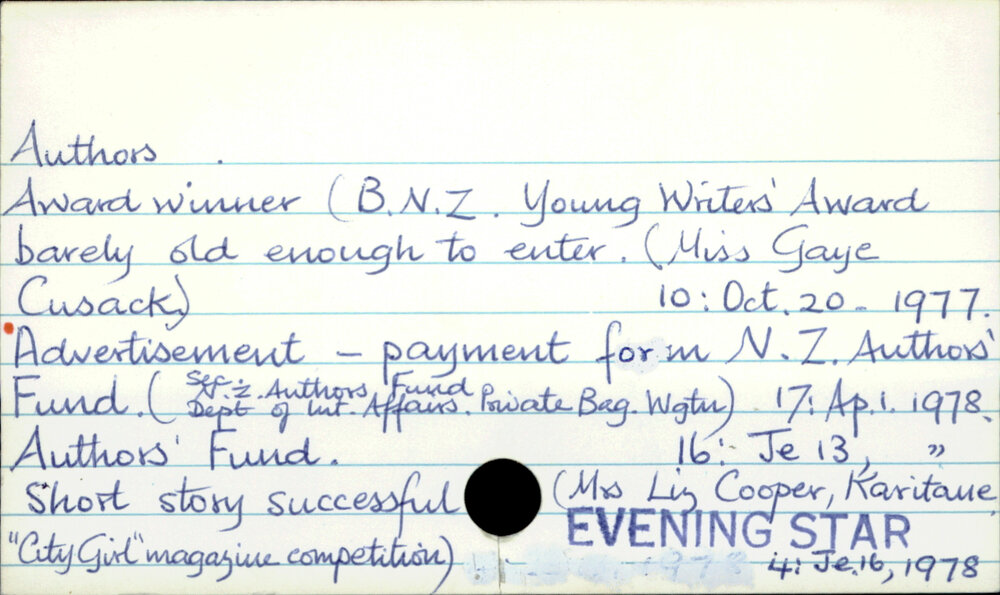 Authors .
Award winner (B.N.Z. Young Writers' Award
barely old enough to enter. (Miss Gaye
Cusack) 10: Oct. 20 - 1977.
Advertisement - payment form N.Z. Authors'
Fund. ( Sec. N.Z. Authors Fund
Dept of Int. Affairs. Private Bag. Wgtn) 17: Ap. 1. 1978.
Authors' Fund. 16: Je 13, "
Short story successful (Mrs Liz Cooper, Karitane,
EVENING STAR
"City Girl" magazine competition) 4: Je. 16, 1978